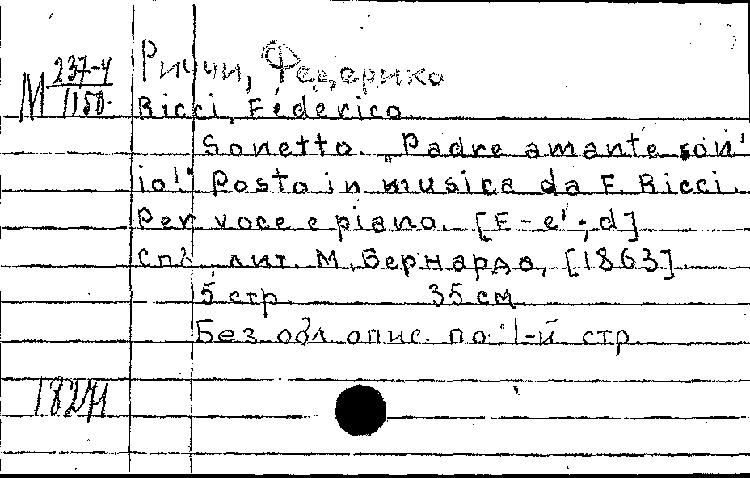 Риччи, Федерико
М 237-4/1150
Ricci, Federico
Sonetto. „Padre amante son'
io!" Posto in musica da F. Ricci.
Per voce e piano. [E-e'; d]
Спб. лит. М. Бернарда, [1863]
5 стр. 35 см
Без обл. опис. по 1-й стр.
18271